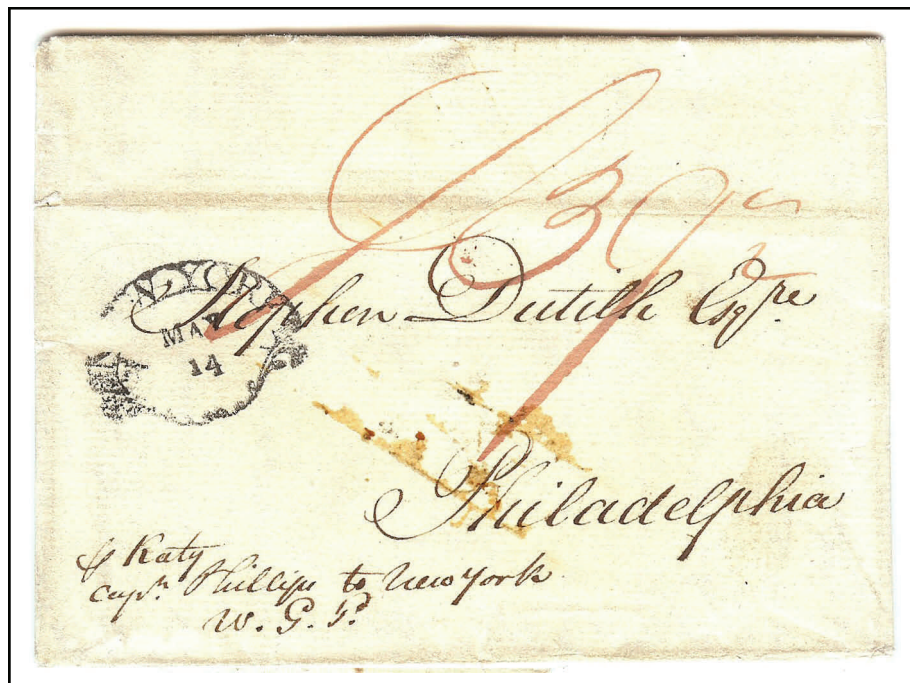 N. YORK
MAR
14
Stephen Dutilh Esqre
Philadelphia
Katy
Capn. Phillips to New York
W. G. Pd